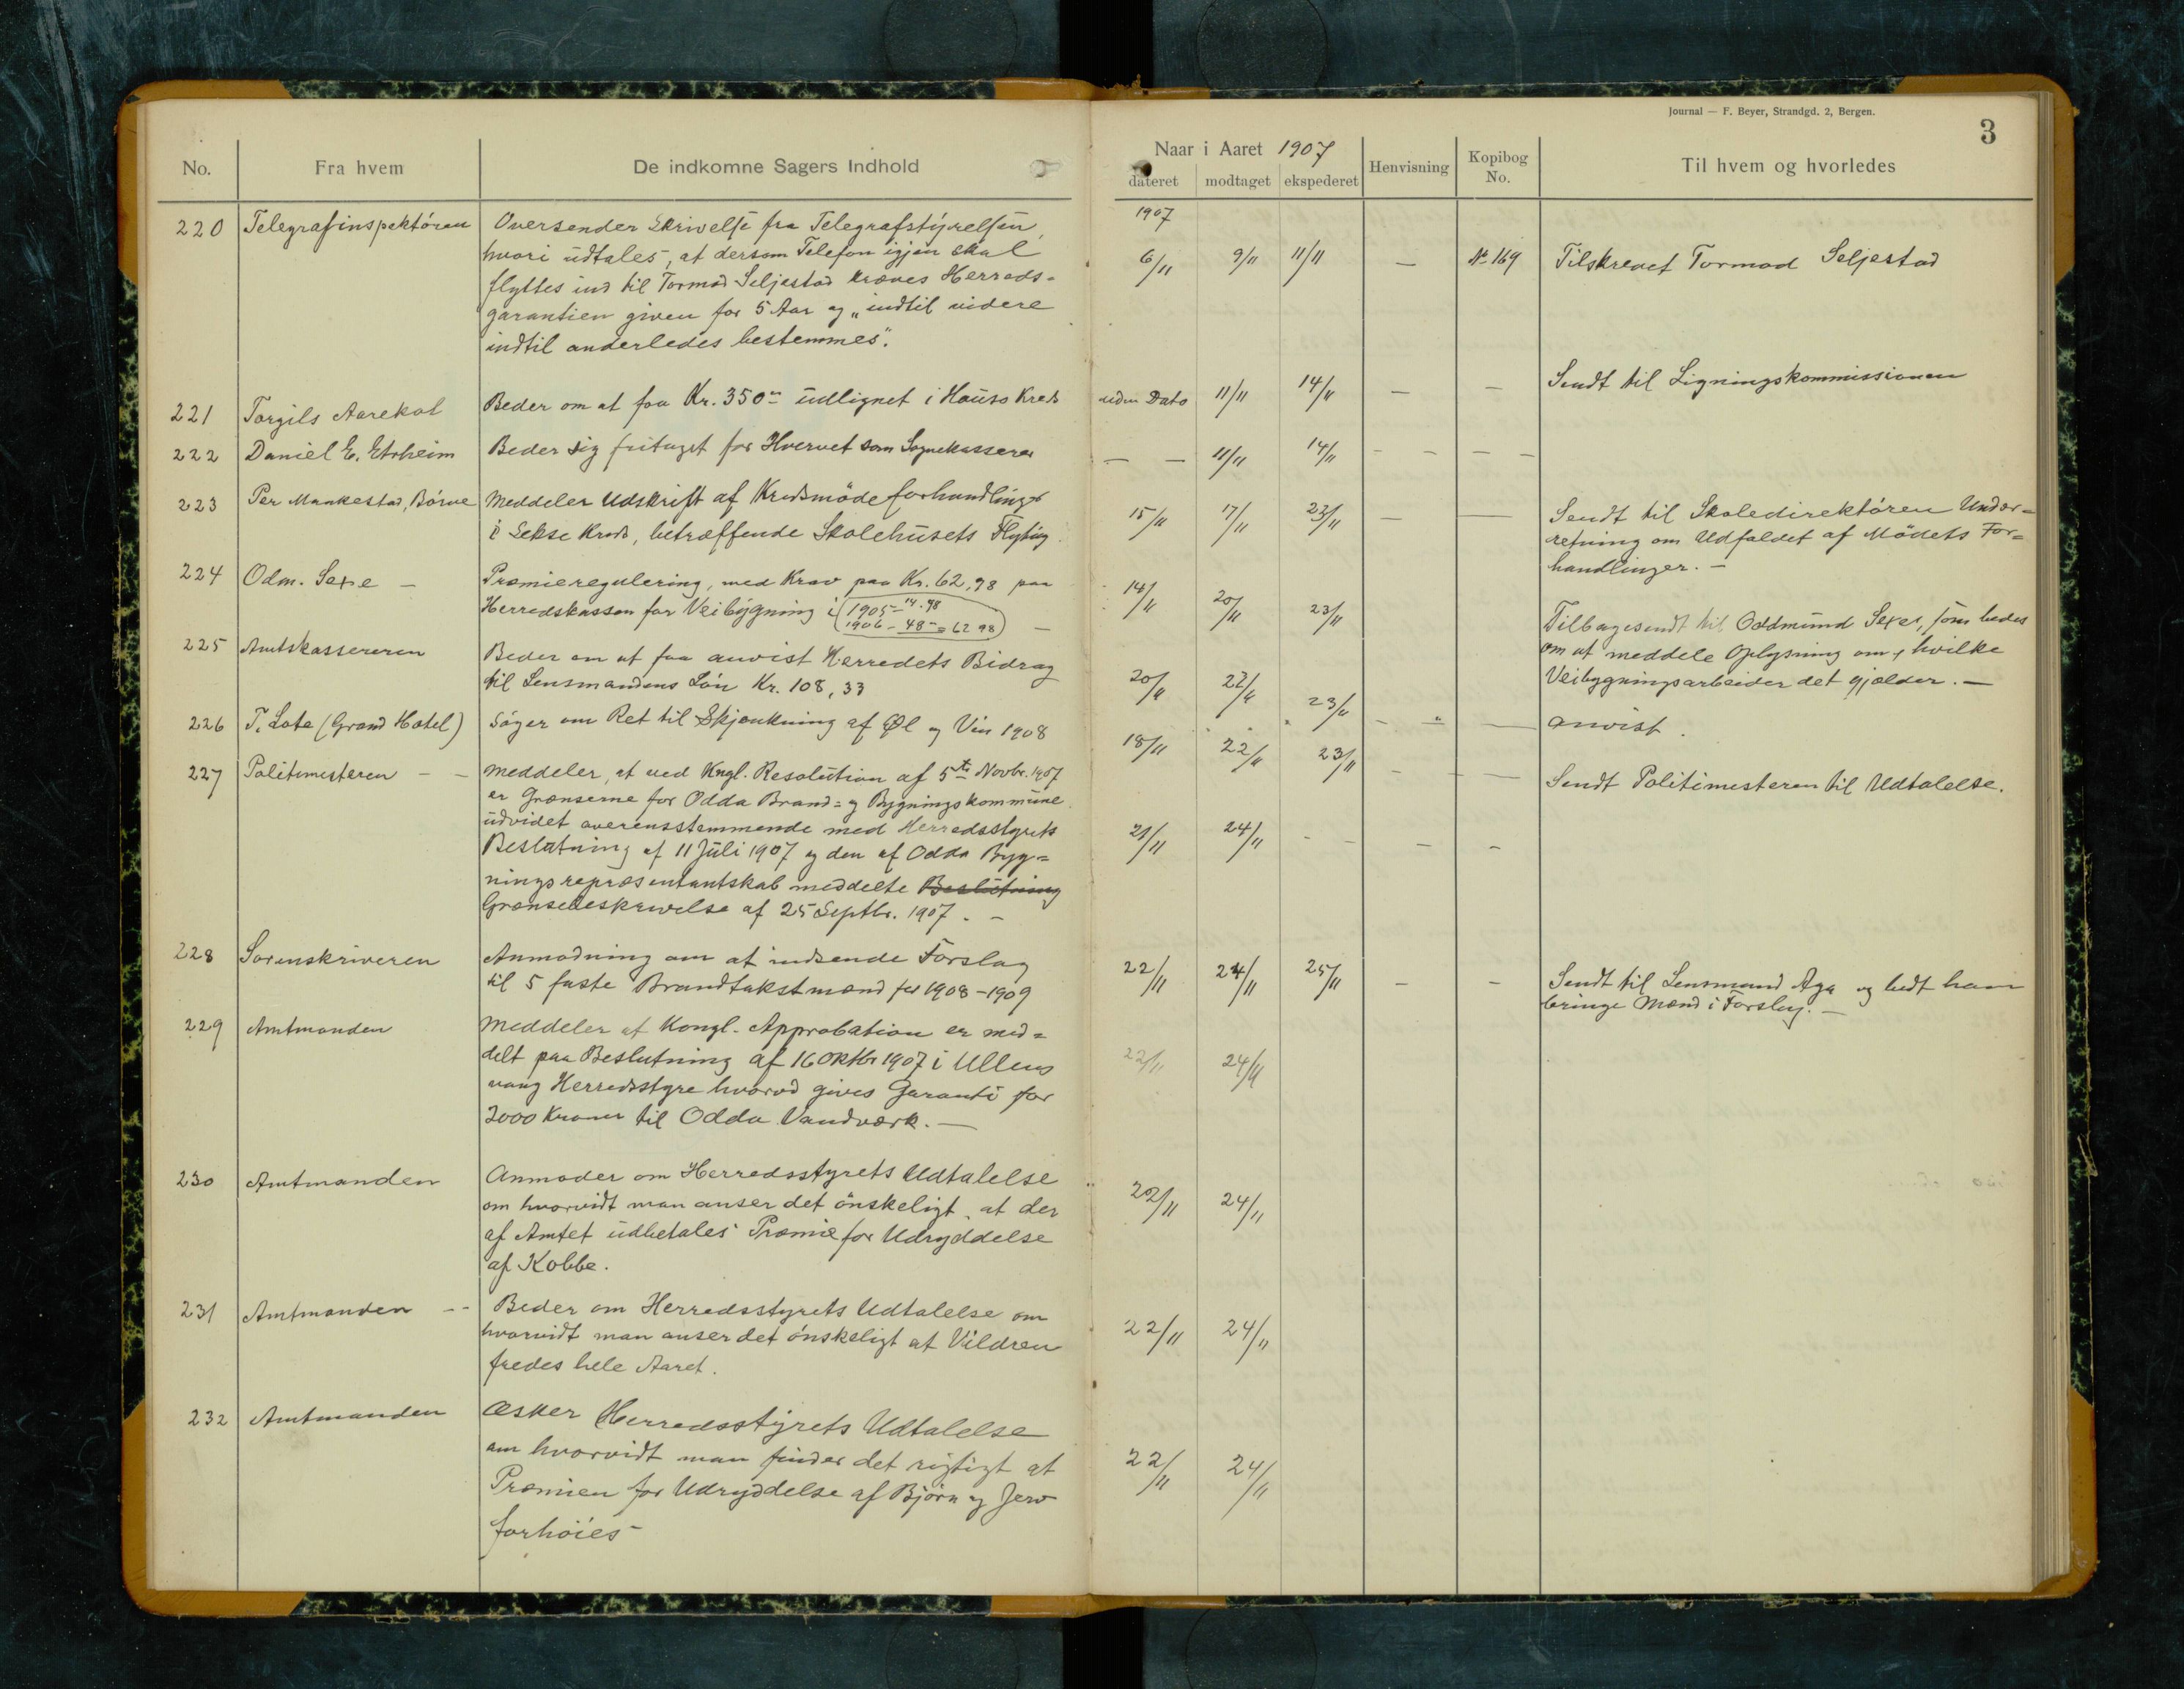 Journal — F. Beyer, Strandgd. 2, Bergen.
3
No.
Fra hvem
De indkomne Sagers Indhold
Naar i Aaret 1907
dateret
modtaget
ekspederet
Henvisning
Kopibog No.
Til hvem og hvorledes
1907
220 Telegrafinspektören
Oversender Skrivelse fra Telegrafstyrelsen,
hvori udtales, at dersom Telefon igjen skal
flyttes ind til Tormod Seljestad kræves Herreds-
garantien given for 5 Aar og "indtil videre
indtil anderledes bestemmes".
6/11 9/11 11/11 — No 169 Tilskrevet Tormod Seljestad
221 Torgils Aarekol
Beder om at faa Kr. 350 00 udlignet i Hauso Kreds
uden Dato 11/11 14/11 — — Sendt til Ligningskommissionen
222 Daniel E. Eitrheim
Beder sig fritaget for Hvervet som Sognekasserer
— — 11/11 14/11 - - - -
223 Per Mankestad, Börve
Meddeler Udskrift af Kredsmöde forhandlinger
i Sekse Kreds, betræffende Skolehusets Flytning.
15/11 17/11 23/11 — —
Sendt til Skoledirektören Under=
retning om Udfaldet af Mödets For=
handlinger. —
224 Odm. Sexe —
Præmieregulering, med Krav paa Kr. 62,98 paa
Herredskassen for Veibygning i (1905 - 14.98
1906 - 48 - = 62 98) —
14/11 20/11 23/11
Tilbagesendt til Oddmund Sexe, som bedes
om at meddele Oplysning om, hvilke
Veibygningsarbeider det gjælder. —
225 Amtskassereren
Beder om at faa anvist Herredets Bidrag
til Lensmandens Lön Kr. 108,33
20/11 22/11 23/11 - " —
anvist.
226 T. Lote (Grand Hotel)
Söger om Ret til Skjænkning af Øl og Vin 1908
18/11 22/11 23/11 - - —
Sendt Politimesteren til Udtalelse.
227 Politimesteren - -
Meddeler, at ved Kngl. Resolution af 5te Novbr. 1907
er Grænserne for Odda Brand= og Bygningskommune
udvidet overensstemmende med Herredsstyrets
Beslutning af 11 Juli 1907 og den af Odda Byg=
ningsrepræsentantskab meddelte Beslutning
Grænsebeskrivelse af 25 Septbr. 1907. -
21/11 24/11 - - - -
228 Sorenskriveren
Anmodning om at indsende Forslag
til 5 faste Brandtakstmænd for 1908-1909
22/11 24/11 25/11 - -
Sendt til Lensmand Aga og bedt ham
bringe Mænd i Forslag. —
229 Amtmanden
Meddeler at Kongl. Approbation er med=
delt paa Beslutning af 16 Oktbr 1907 i Ullens
vang Herredsstyre hvorved gives Garanti for
2000 Kroner til Odda Vandværk. —
22/11 24/11
230 Amtmanden
Anmoder om Herredsstyrets Udtalelse
om hvorvidt man anser det önskeligt, at der
af Amtet udbetales Præmie for Udryddelse
af Kobbe.
22/11 24/11
231 Amtmanden --
Beder om Herredsstyrets Udtalelse om
hvorvidt man anser det önskeligt at Vildren
fredes hele Aaret.
22/11 24/11
232 Amtmanden
Æsker Herredsstyrets Udtalelse
om hvorvidt man finder det rigtigt at
Præmien for Udryddelse af Bjørn og Jerv
forhöies -
22/11 24/11